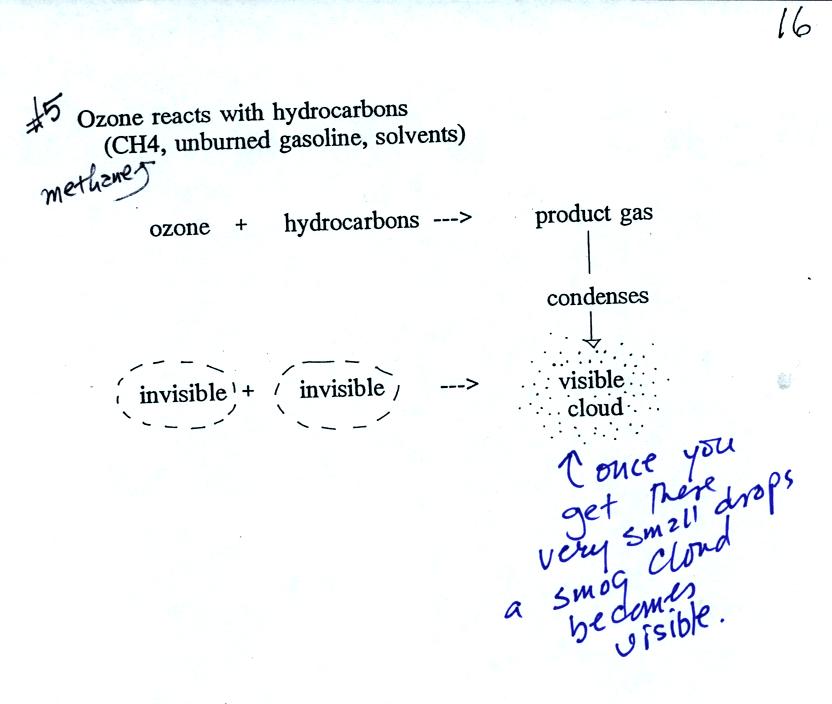 16
#5 Ozone reacts with hydrocarbons
(CH4, unburned gasoline, solvents)
methane
ozone + hydrocarbons ---> product gas
condenses
invisible + invisible ---> visible
cloud
↑ once you
get these
very small drops
a smog cloud
becomes
visible.